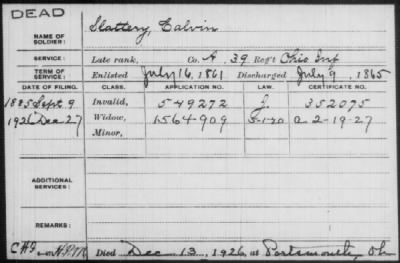 DEAD
NAME OF SOLDIER: Slattery, Calvin
SERVICE: Late rank, Co. A, 39 Reg't Ohio Inf
TERM OF SERVICE: Enlisted July 16, 1861 Discharged July 9, 1865
DATE OF FILING. CLASS. APPLICATION NO. LAW. CERTIFICATE NO.
1885 Sept 9 Invalid, 549272 352075
1926 Dec 27 Widow, 1564909 a-2-19-27
Minor,
ADDITIONAL SERVICES:
REMARKS:
Died Dec 13, 1926, at Portsmouth, Oh